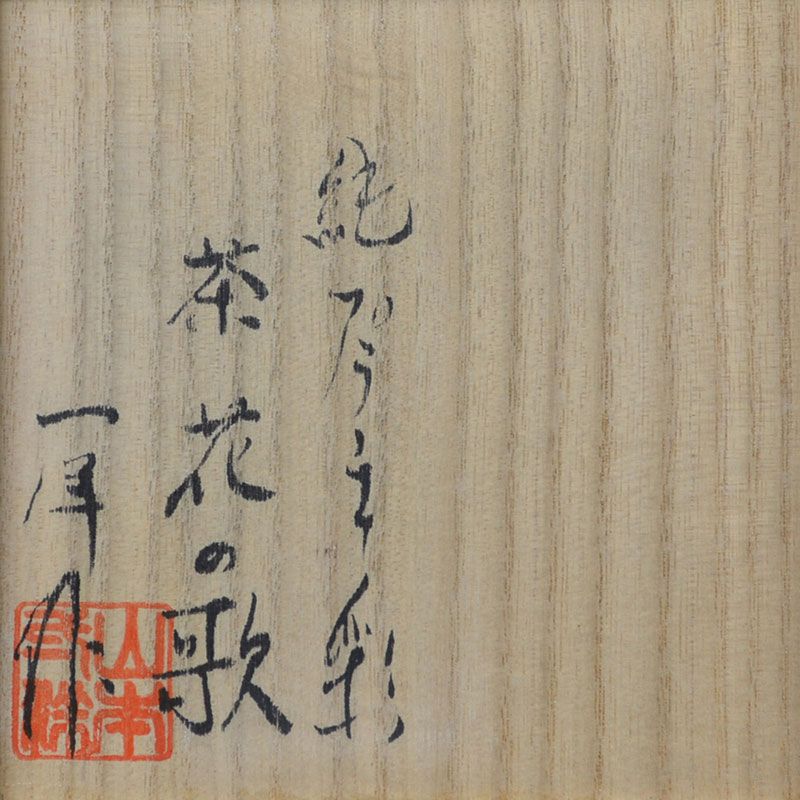 純プラチナ彩
茶花の歌
一洋作
山本